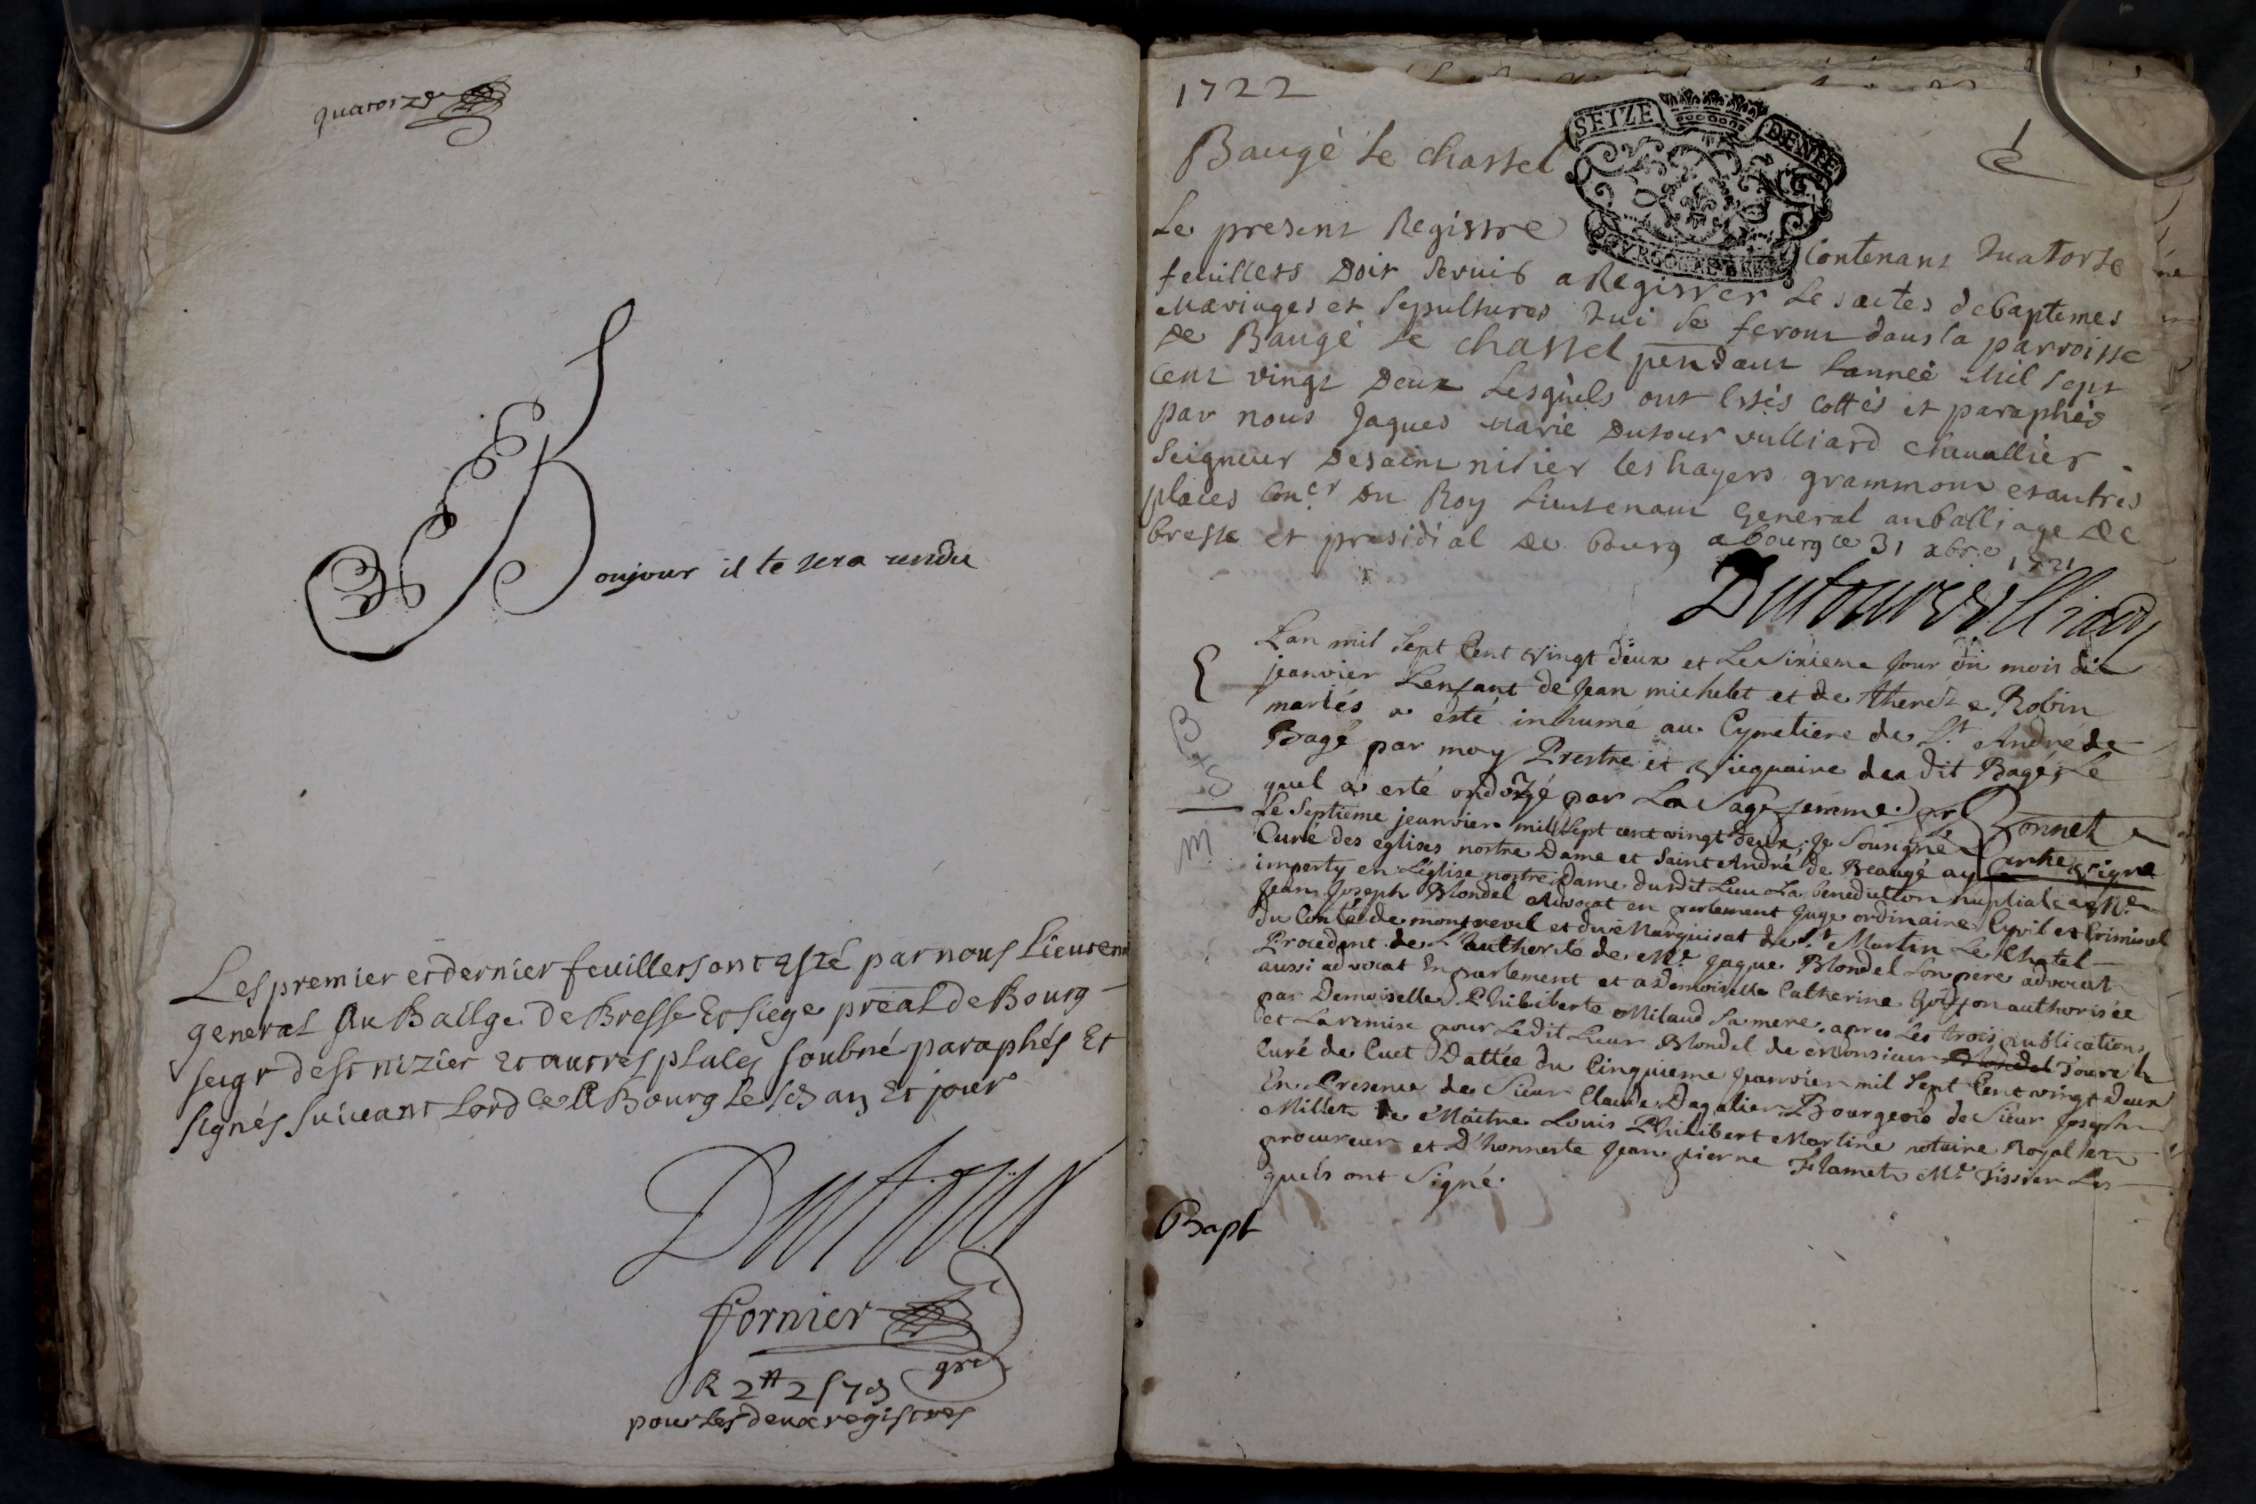 quatorze
Bonjour il te sera rendu
Les premier et dernier feuillets ont esté par nous Lieuten
general Au Bailge De Bresse Et siege preal de Bourg
seigr de st nizier et autres places soubné paraphés Et
signés suivant Lordce A Bourg Le sd an Et jour
Dutour
fornier
gre
R 2tt 2s 7d
pour les deux registres
1722
Baugé le chastel
SEIZE DENIE
Le present Registre Contenant quatorse
feuillets Doit servir a Registrer les actes de baptemes
Mariages et sepultures qui se feront dans la parroisse
de Baugé le chastel pendant l'année Mil sept
cent vingt Deux Lesquels ont estés cottés et paraphés
par nous Jaques Marie Dutour vulliard chevallier
Seigneur De saint nisier les hayers grammont et autres
places Coner Du Roy Lieutenant General au balliage de
bresse et presidial de bourg a bourg ce 31 xbre 1721
Dutour vulliard
Lan mil Sept Cent Vingt deux et Le Sixieme Jour du mois de
jeanvier L'enfant de Jean michelet et de therese Robin
mariés a esté inhumé au Cymetiere de St André de
Bagé par moy Prestre et Vicquaire du dit Bagé, Le
quel a esté ondoyé par La Sage femme.
Le Septieme jeanvier mil Sept cent vingt deux, Je Sousigné
Curé des eglises nostre Dame et Saint André de Beaugé ay
imparty en L'église nostre Dame dudit Lieu La benediction nuptiale a Me
Jean Joseph Blondel Advocat en parlement Juge ordinaire Cyvil et Criminel
du Conté de montrevel et du Marquisat de St Martin Le Chatel
Procedant de L'authorité de Me Jaque Blondel Son pere advocat
aussi advocat En parlement et a Demoiselle Catherine authorisée
par Demoiselle Philiberte Milaud Sa mere, apres Les trois publications
et La remise pour Le dit Sieur Blondel de monsieur
Curé de Cuet Dattée du Cinquieme Jeanvier mil Sept Cent vingt Deux
En Presence de Sieur Claude Dagalier Bourgeois de Sieur Joseph
Millet de Maitre Louis Philibert Martine notaire Royal et
procureur et D'honneste Jean pierre Flamet Me Tissier Les
quels ont Signé.
Bapt